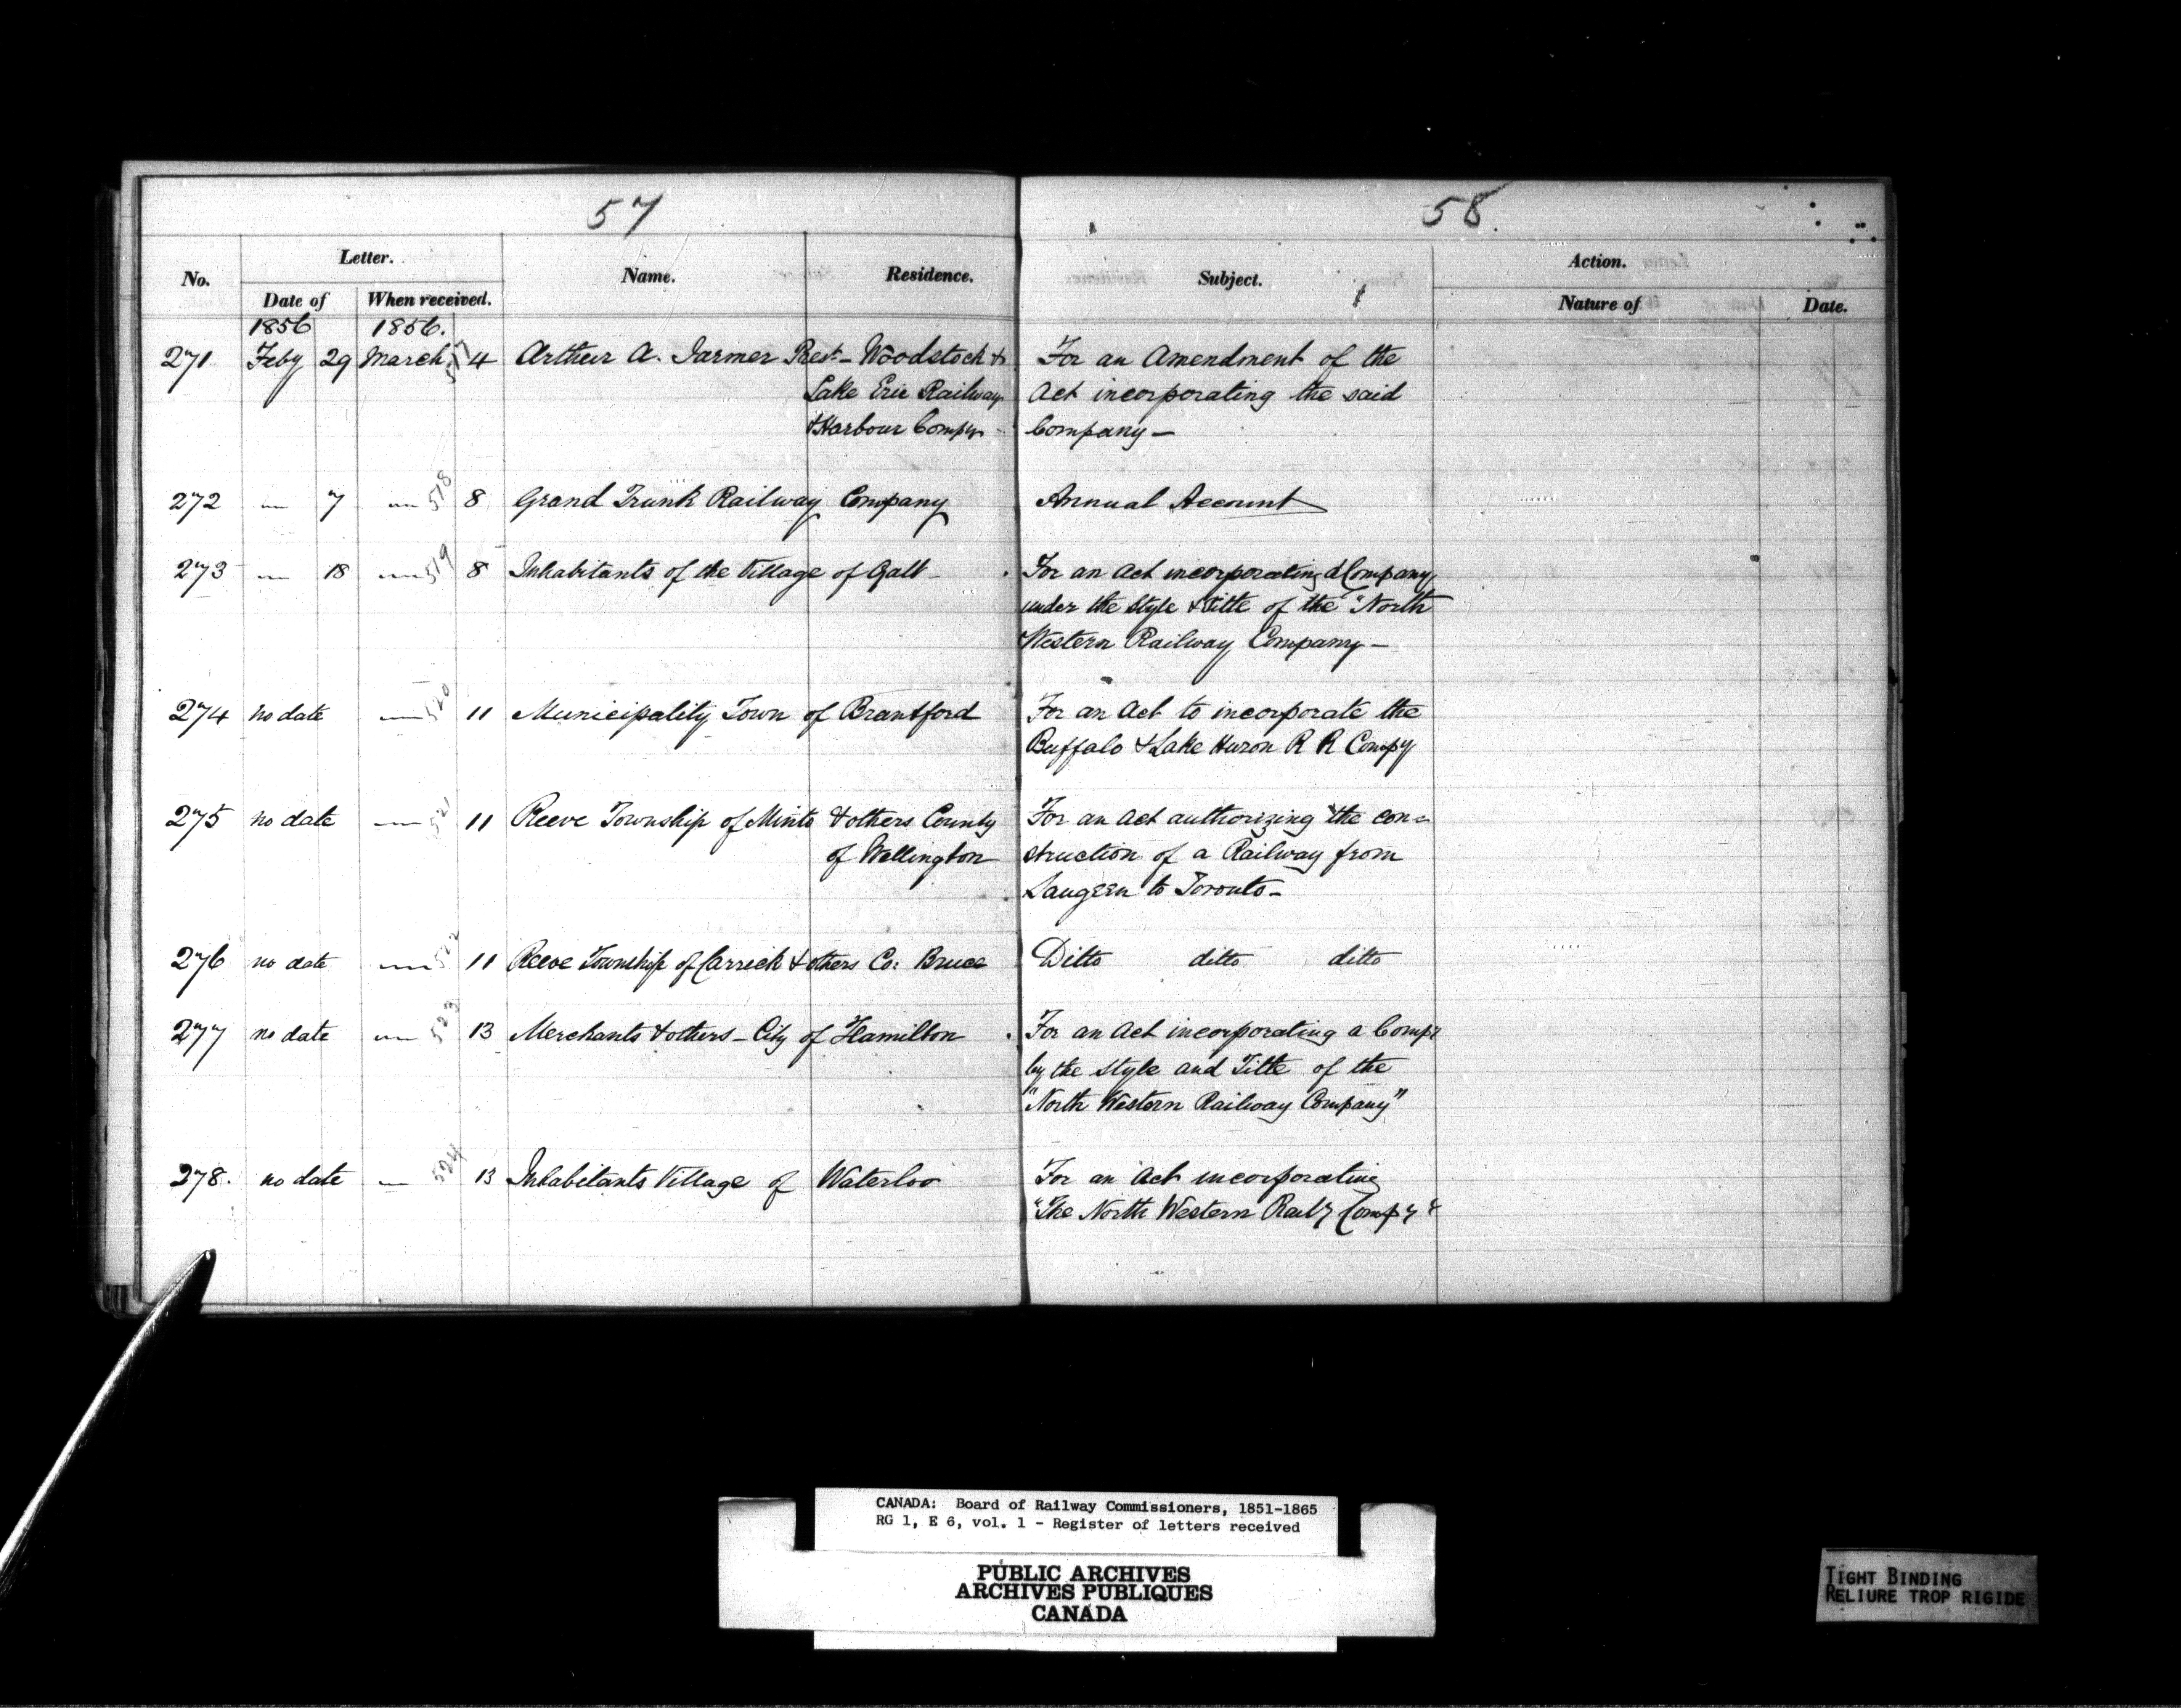 57
58.
No.
Letter.
Date of
When received.
Name.
Residence.
Subject.
Action.
Nature of
Date.
1856 1856.
271 Feby 29 March 517 4 Arthur A. Farmer Prest - Woodstock & For an Amendment of the
Lake Erie Railway Act incorporating the said
& Harbour Compy - Company -
272 " 7 " 518 8 Grand Trunk Railway Company Annual Account
273 " 18 " 519 8 Inhabitants of the Village of Galt - For an Act incorporating a Company
under the Style & Title of the "North
Western Railway Company -
274 no date " 520 11 Municipality Town of Brantford For an Act to incorporate the
Buffalo & Lake Huron R R Compy
275 no date " 521 11 Reeve Township of Minto & others County For an Act authorizing the con=
of Wellington struction of a Railway from
Saugeen to Toronto -
276 no date " 522 11 Reeve Township of Carrick & others Co: Bruce Ditto ditto ditto
277 no date " 523 13 Merchants & others - City of Hamilton For an Act incorporating a Compy
by the Style and Title of the
"North Western Railway Company"
278. no date " 524 13 Inhabitants Village of Waterloo For an Act incorporating
"The North Western Raily Compy"
CANADA: Board of Railway Commissioners, 1851-1865
RG 1, E 6, vol. 1 - Register of letters received
PUBLIC ARCHIVES
ARCHIVES PUBLIQUES
CANADA
TIGHT BINDING
RELIURE TROP RIGIDE